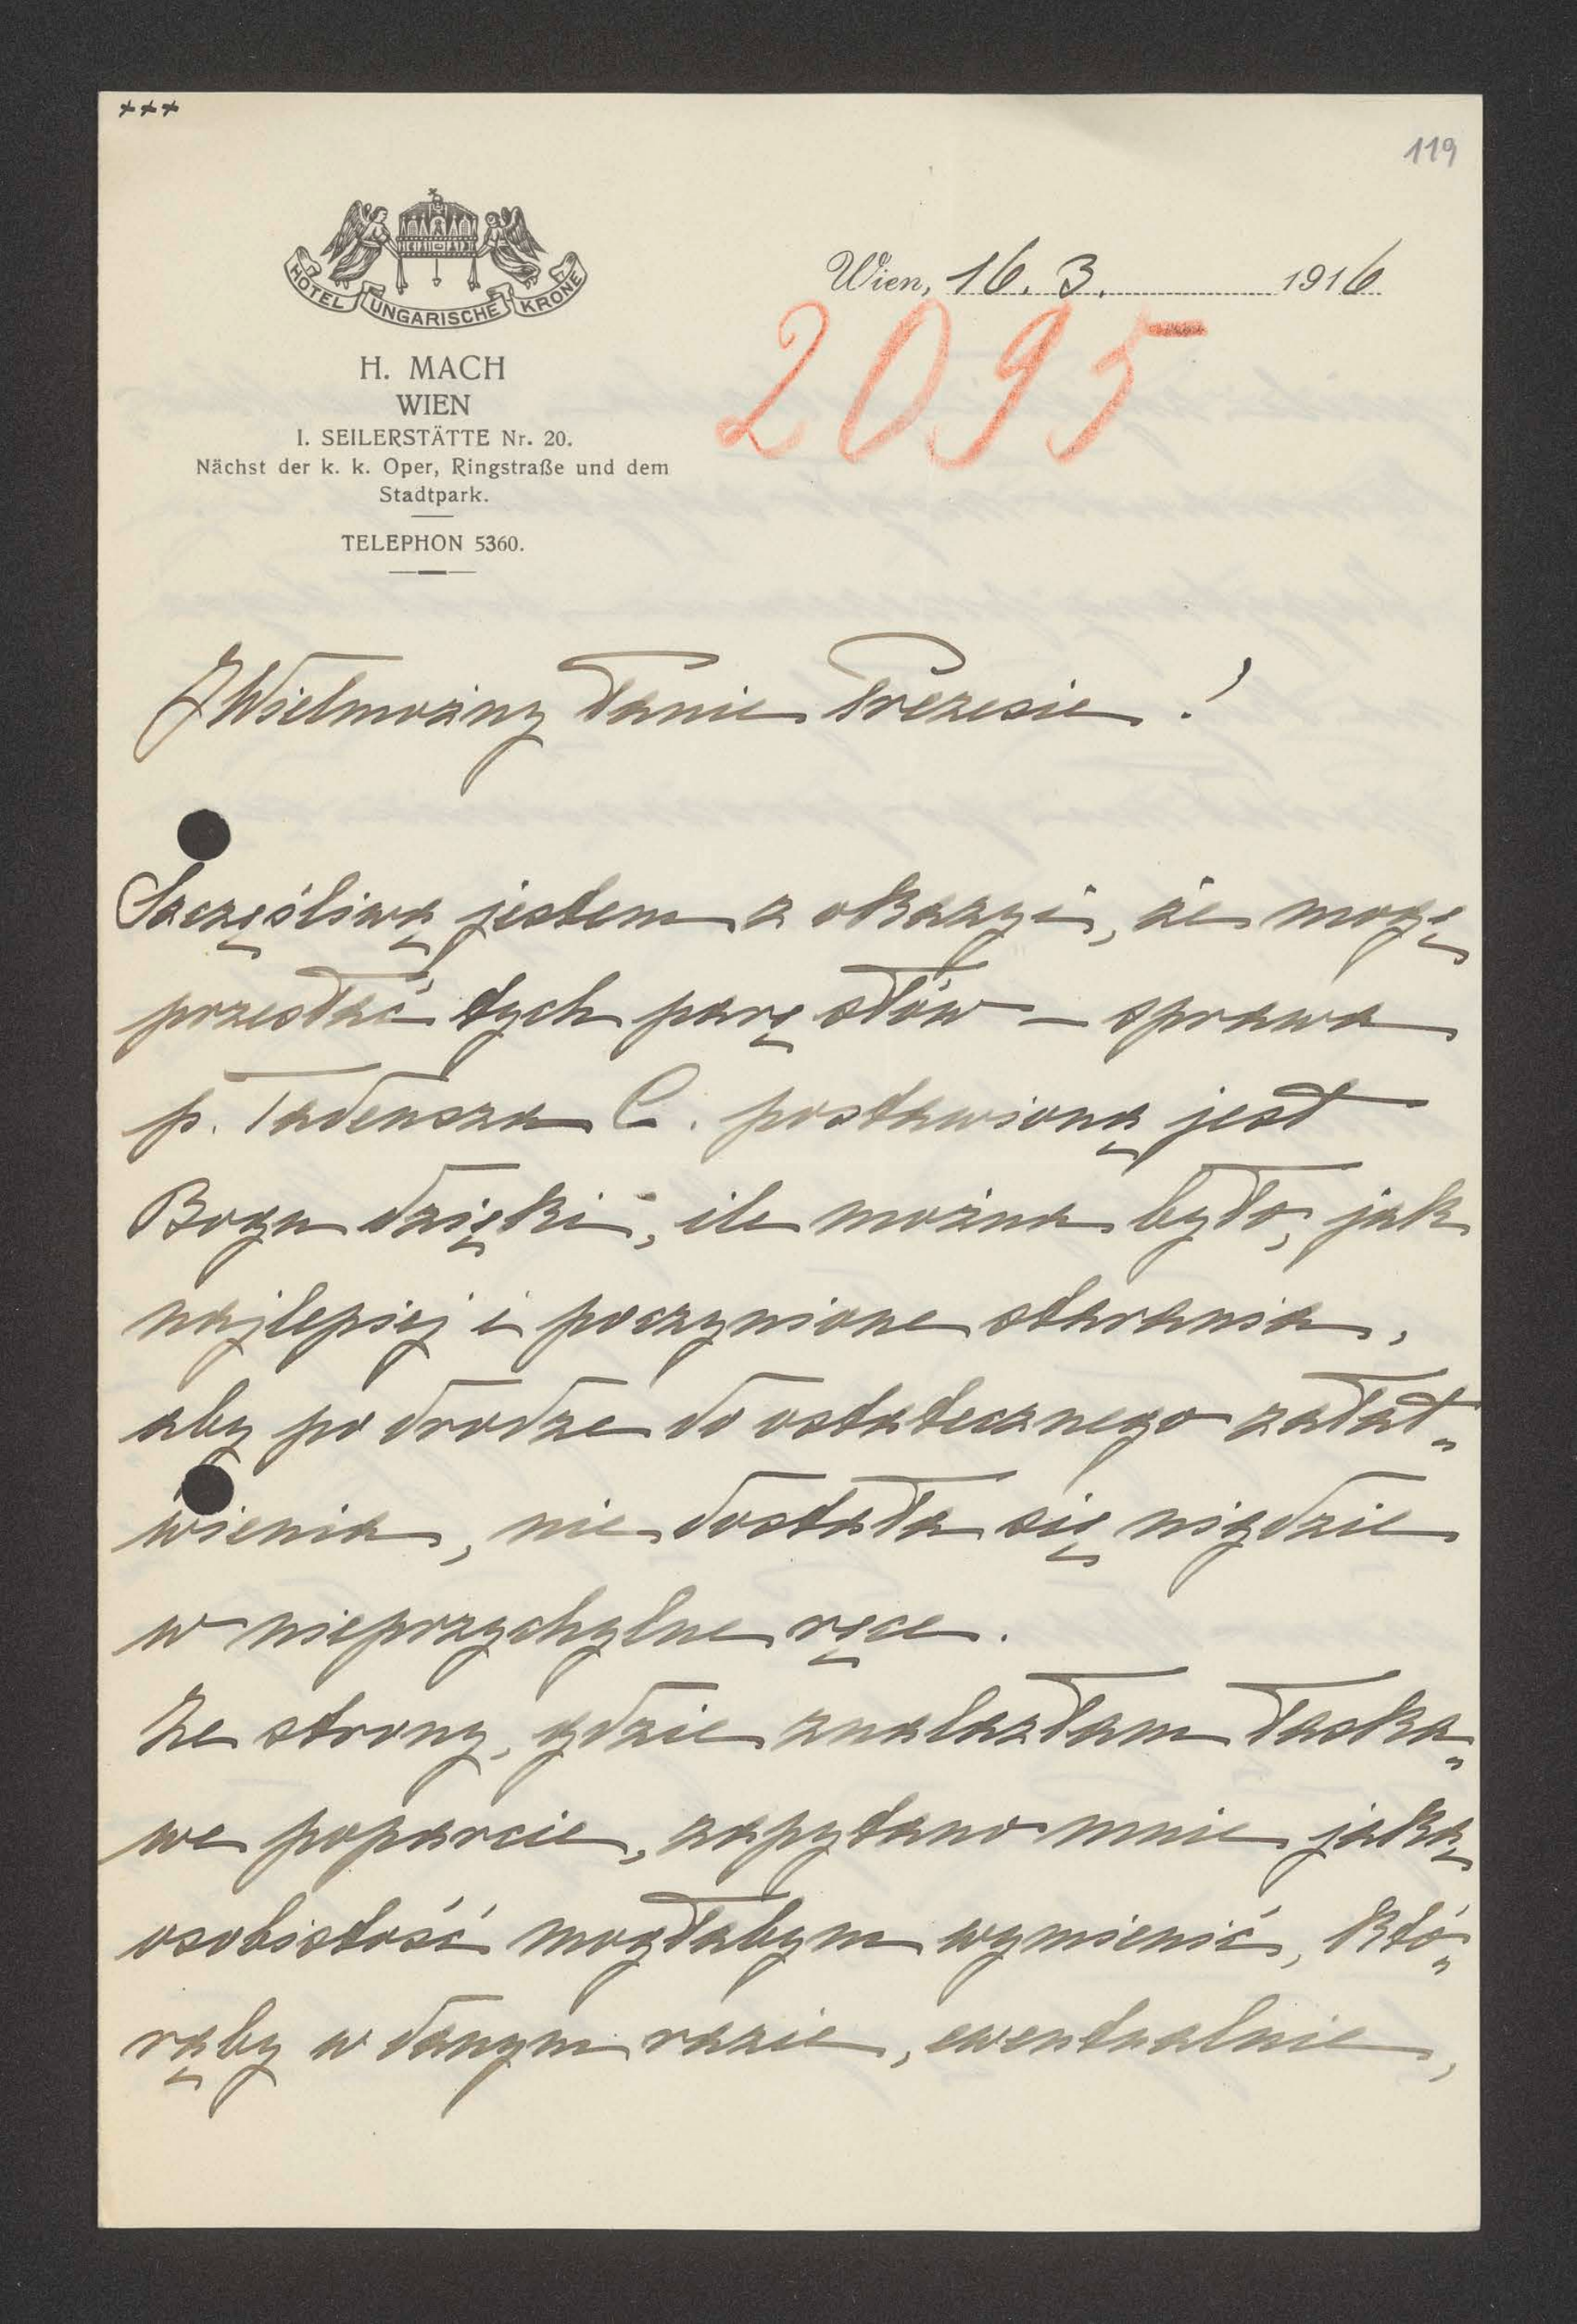 +++
119
HÔTEL UNGARISCHE KRONE
H. MACH
WIEN
I. SEILERSTÄTTE Nr. 20.
Nächst der k. k. Oper, Ringstraße und dem
Stadtpark.
TELEPHON 5360.
Wien, 16. 3. 1916
2095
JWielmożny Panie Prezesie!
Szczęśliwą jestem z okazyi, że mogę
przesłać tych parę słów – sprawa
p. Tadeusza C. postawioną jest
Bogu dzięki, ile można było, jak
najlepiej i poczynione starania,
aby po drodze do ostatecznego załat„
wienia, nie dostała się nigdzie
w nieprzychylne ręce.
Ze strony, gdzie znalazłam łaska„
we poparcie, zapytano mnie jaką
osobistość mogłabym wymienić, któ„
rąby w danym razie, ewentualnie,